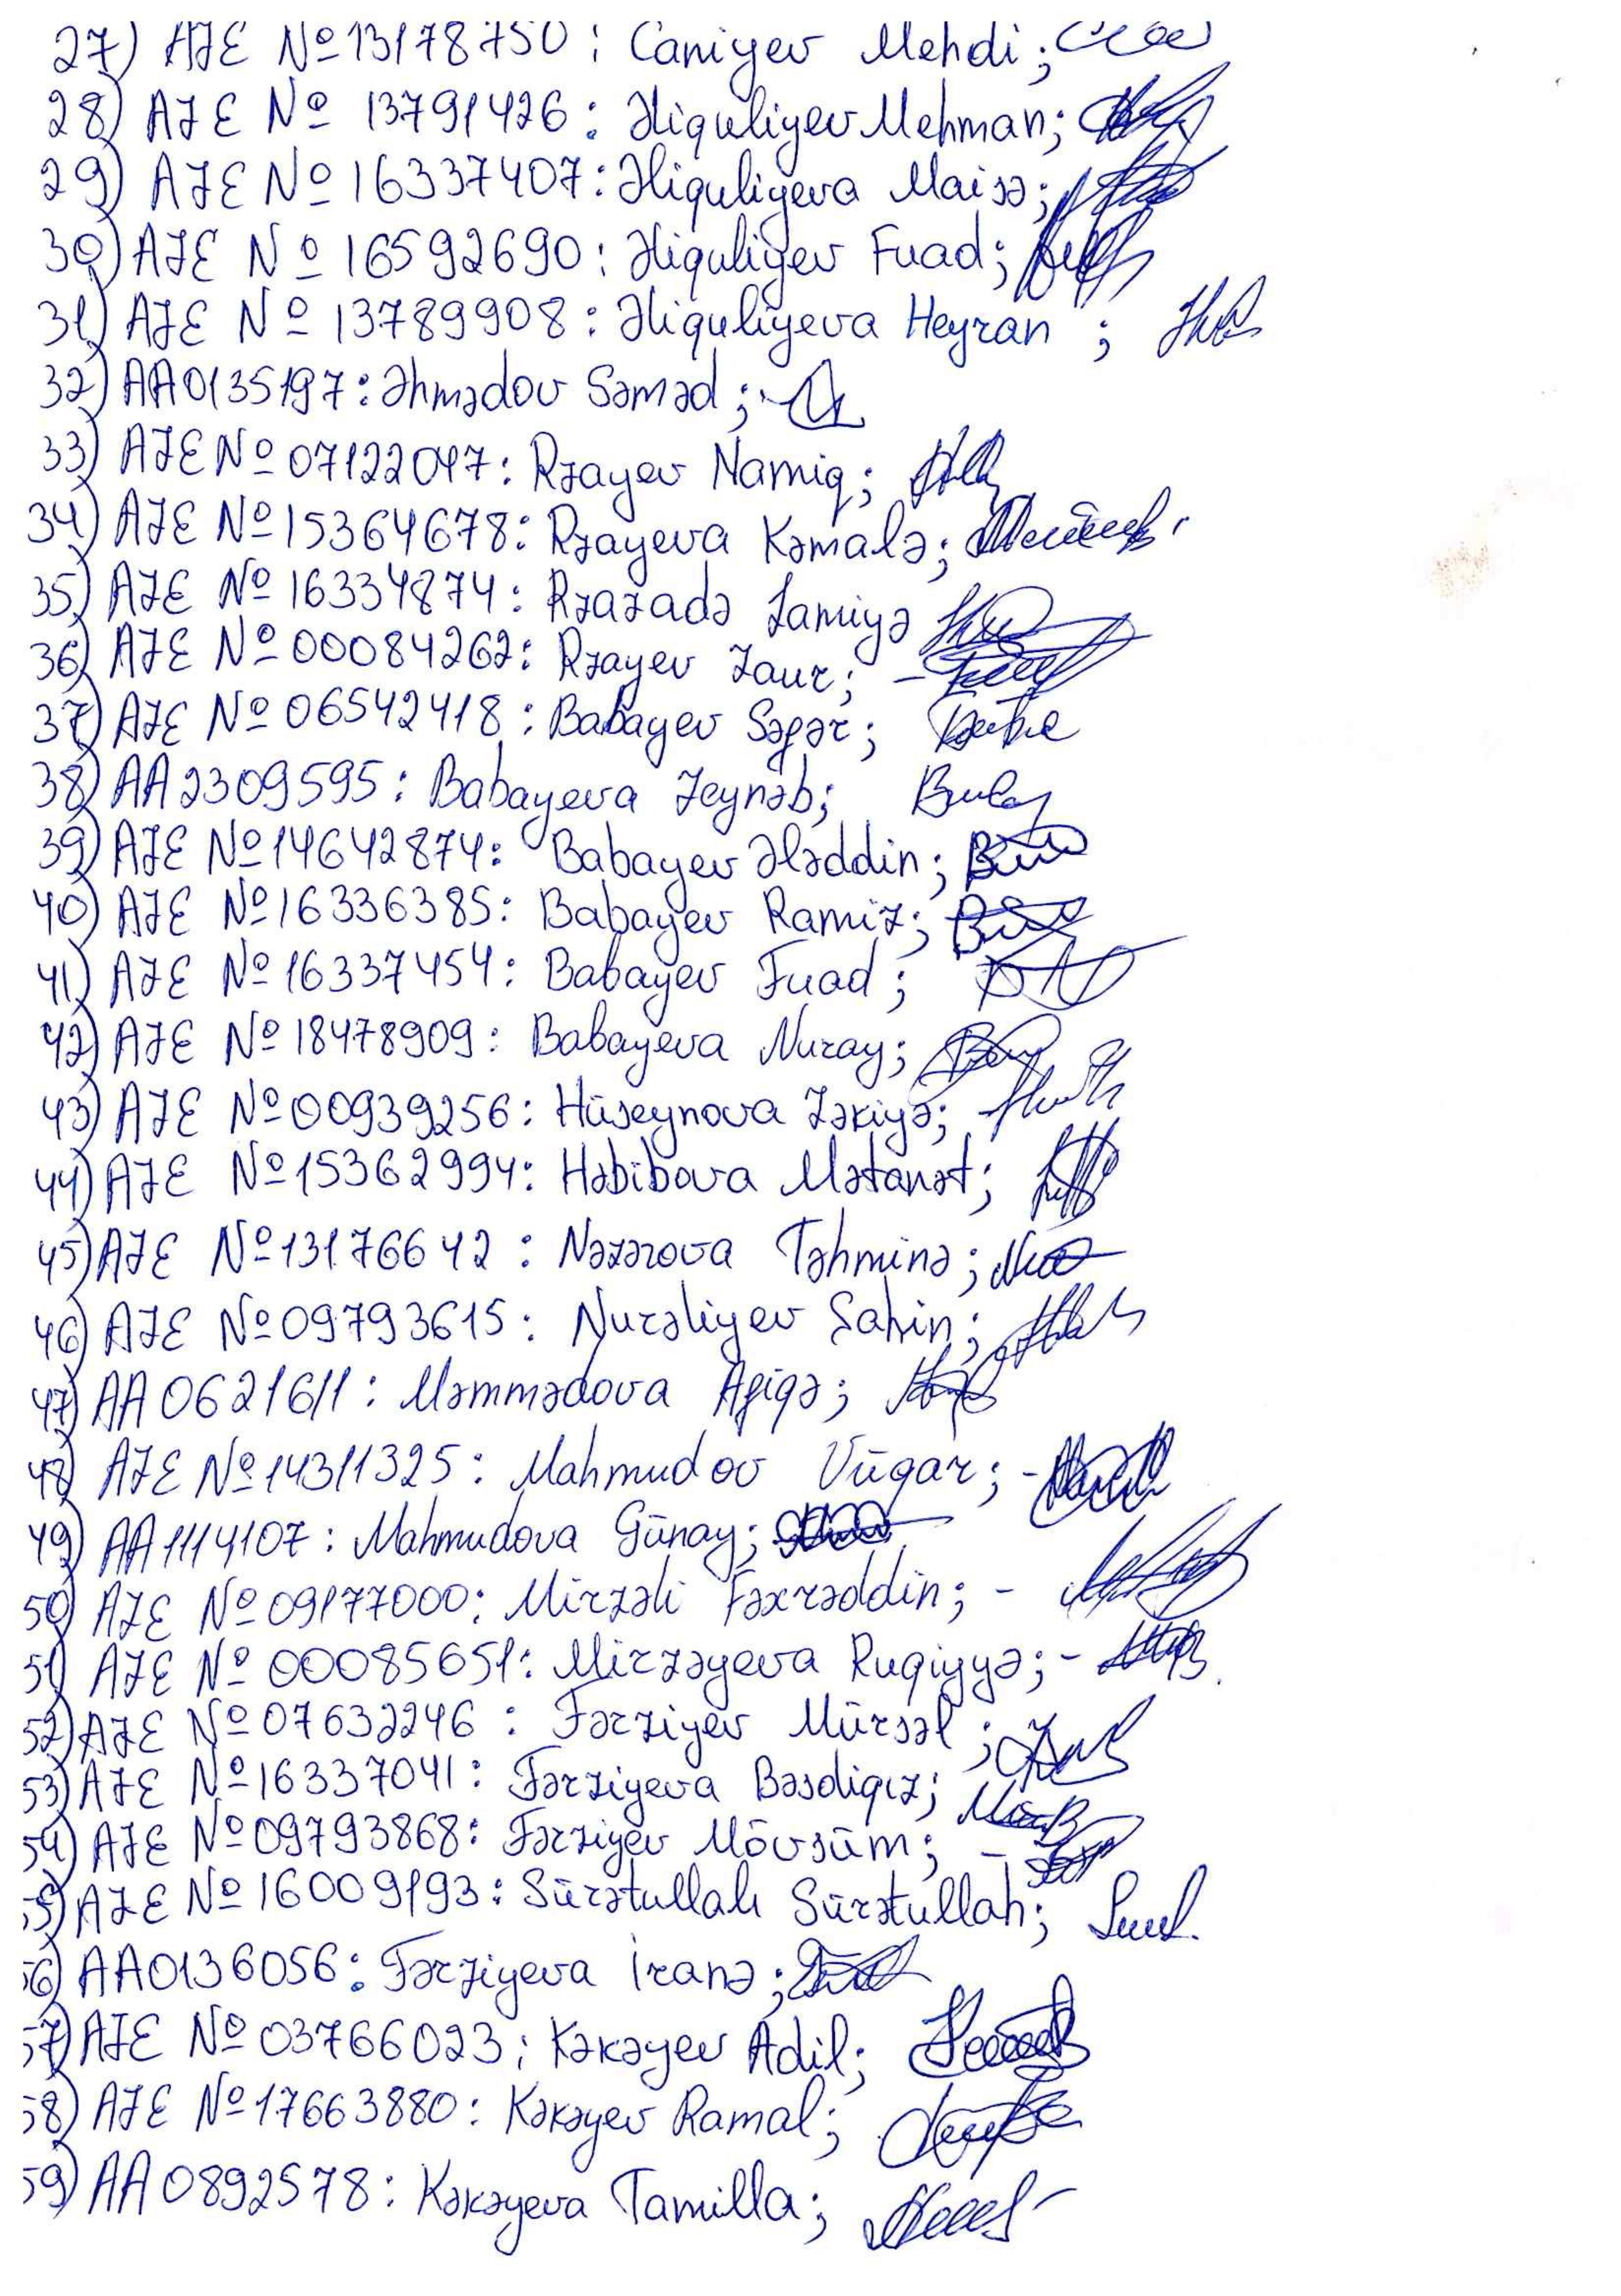 27) AZE № 13178750 : Caniyev Mehdi;
28) AZE № 13791426 : Əliquliyev Mehman;
29) AZE № 16337407 : Əliquliyeva Maisə;
30) AZE № 16592690 : Əliquliyev Fuad;
31) AZE № 13789908 : Əliquliyeva Heyran ;
32) AA0135197 : Əhmədov Səməd ;
33) AZE № 07122047 : Rzayev Namiq ;
34) AZE № 15364678 : Rzayeva Kəmalə ;
35) AZE № 16334874 : Rzazadə Lamiyə
36) AZE № 00084262 : Rzayev Zaur ; -
37) AZE № 06542418 : Babayev Səfər ;
38) AA2309595 : Babayeva Zeynəb ;
39) AZE № 14642874 : Babayev Ələddin ;
40) AZE № 16336385 : Babayev Ramiz ;
41) AZE № 16337454 : Babayev Fuad ;
42) AZE № 18478909 : Babayeva Nuray ;
43) AZE № 00939256 : Hüseynova Zəkiyə ;
44) AZE № 15362994 : Həbibova Mətanət ;
45) AZE № 13176642 : Nəzərova Təhminə ;
46) AZE № 09793615 : Nurəliyev Şahin ;
47) AA0621611 : Məmmədova Afiqə ;
48) AZE № 14311325 : Mahmudov Vüqar ; -
49) AA1114107 : Mahmudova Günay ;
50) AZE № 09177000 : Mirzəli Fəxrəddin ; -
51) AZE № 00085651 : Mirzəyeva Ruqiyyə ; -
52) AZE № 07632246 : Fərziyev Mürsəl ;
53) AZE № 16337041 : Fərziyeva Bəsdiqız ;
54) AZE № 09793868 : Fərziyev Mövsüm ; -
55) AZE № 16009193 : Sürətullah Sürətullah ;
56) AA0136056 : Fərziyeva İranə ;
57) AZE № 03766023 ; Kəkəyev Adil ;
58) AZE № 17663880 : Kəkəyev Ramal ;
59) AA0892578 : Kəkəyeva Tamilla ;